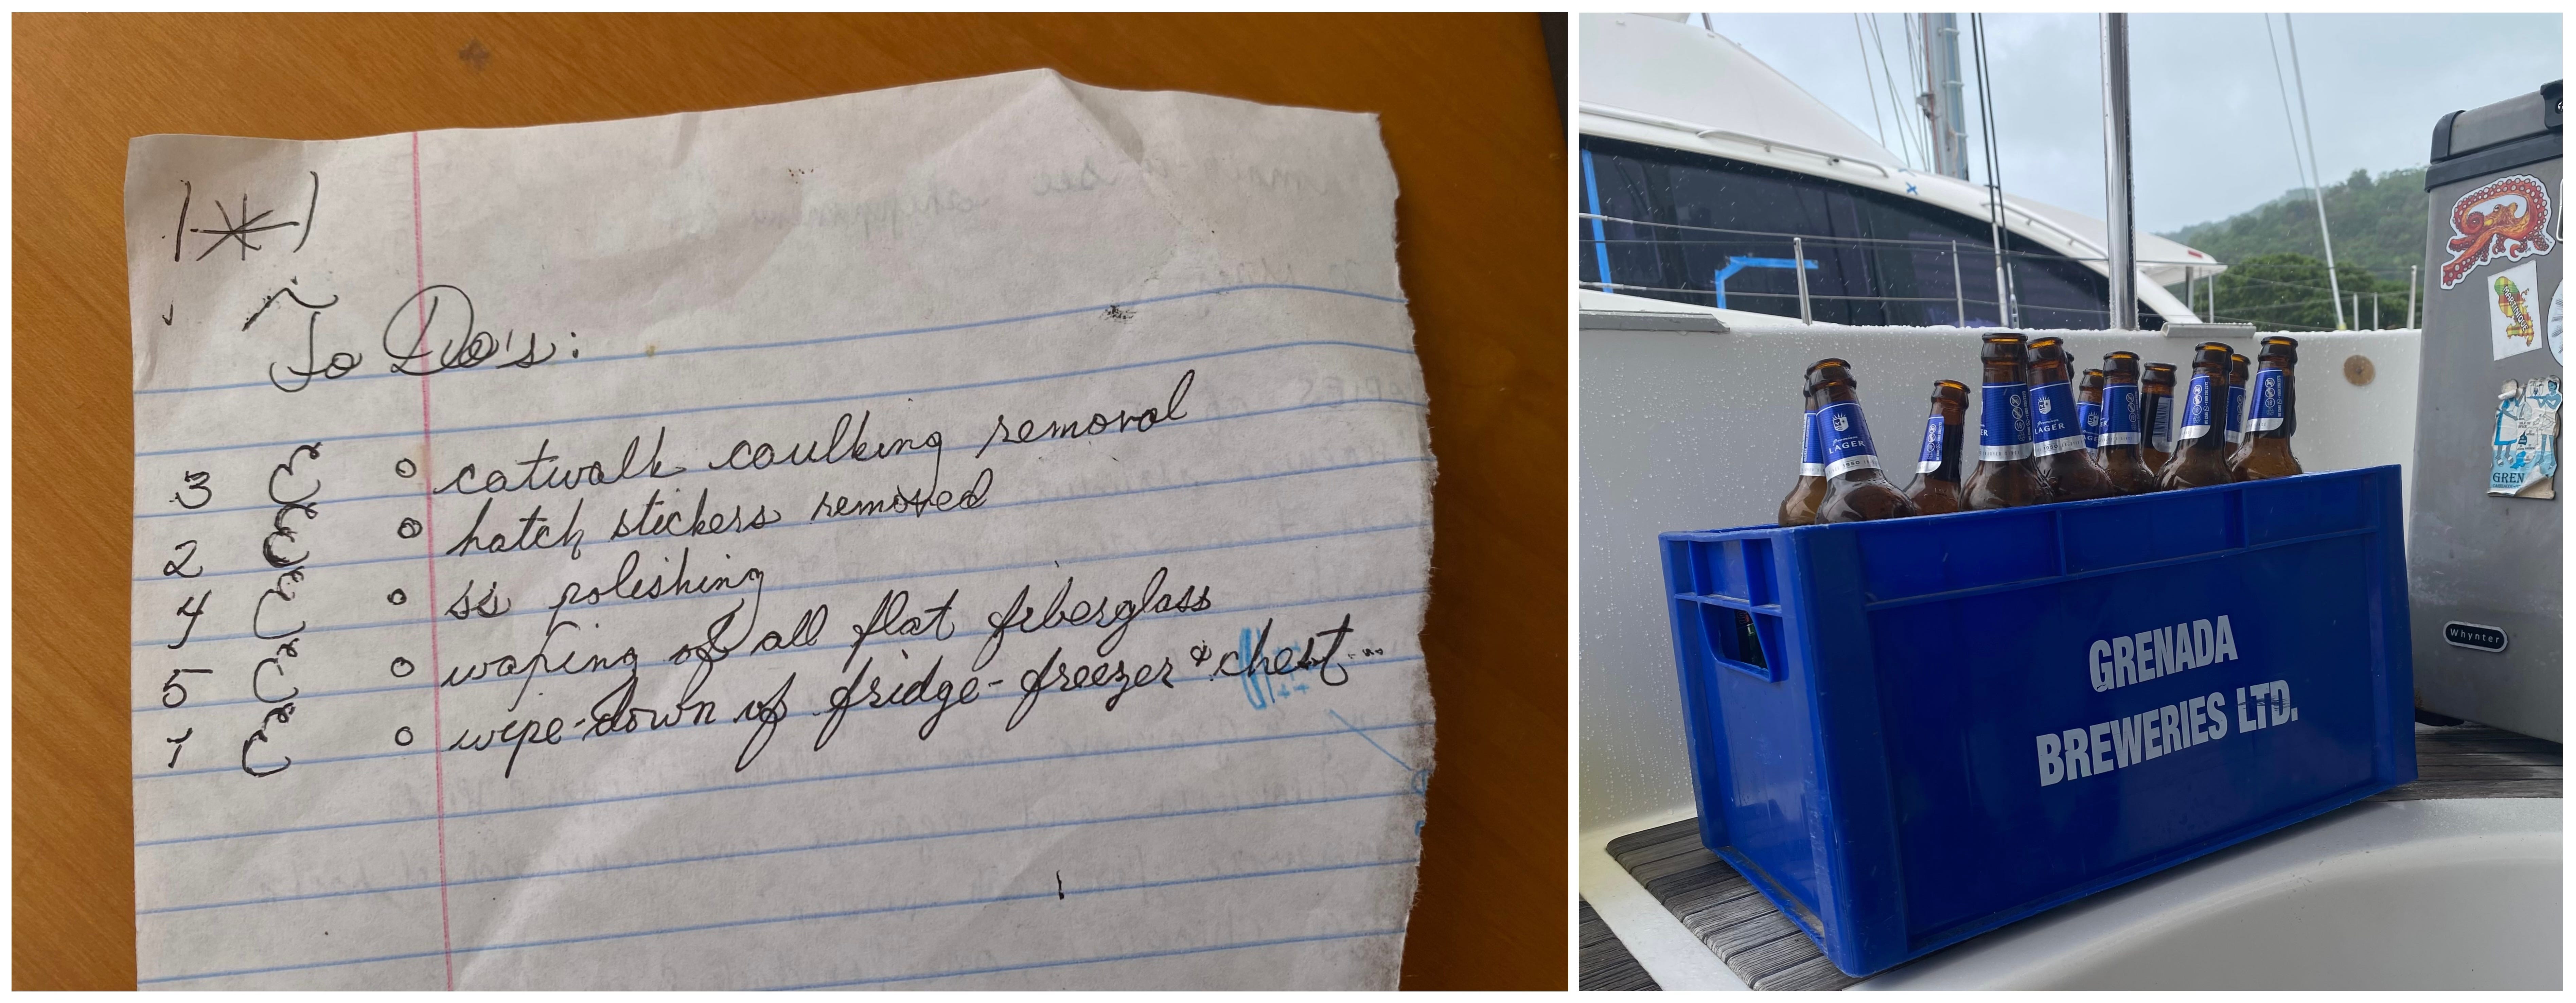 To Do's:
3 ° catwalk caulking removal
2 ° hatch stickers removed
4 ° ss polishing
5 ° waxing of all flat fiberglass
1 ° wipe-down of fridge-freezer & chest
LAGER
LAGER
GRENADA
BREWERIES LTD.
Whynter
GREN